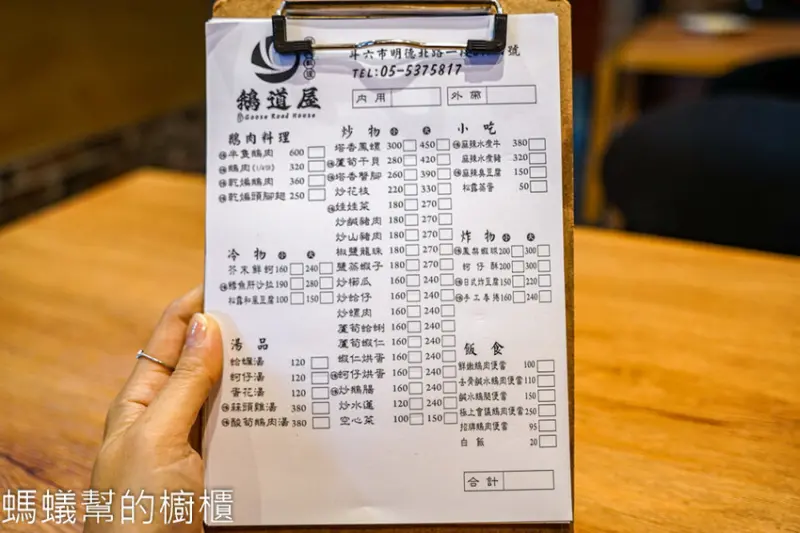 斗六市明德北路一段
TEL:05-5375817
鵝道屋
Goose Road House
內用
外帶
鵝肉料理
半隻鵝肉 600
鵝肉(1/4份) 320
乾煸鵝肉 360
乾煸頭腳翅 250
冷物 小 大
芥末鮮蚵 160 240
鱈魚肝沙拉 190 280
松露和風豆腐 100 150
湯品
蛤蠣湯 120
蚵仔湯 120
蛋花湯 120
蒜頭雞湯 380
酸筍鵝肉湯 380
炒物 小 大
塔香鳳螺 300 450
蘆筍干貝 280 420
塔香蟹腳 260 390
炒花枝 220 330
娃娃菜 180 270
炒鹹豬肉 180 270
炒山豬肉 180 270
椒鹽龍珠 180 270
鹽酥蝦子 180 270
炒櫛瓜 160 240
炒蛤仔 160 240
炒螺肉 160 240
蘆筍蛤蜊 160 240
蘆筍蝦仁 160 240
蝦仁烘蛋 160 240
蚵仔烘蛋 160 240
炒鵝腸 160 240
炒水蓮 120 240
空心菜 100 150
小吃
麻辣水煮牛 380
麻辣水煮豬 320
麻辣臭豆腐 150
松露蒸蛋 50
炸物 小 大
鳳梨蝦球 200 300
蚵仔酥 200 300
日式炸豆腐 150 220
手工香腸 160 240
飯食
鮮嫩鵝肉便當 100
去骨鹹水鵝肉便當 110
鹹水鵝腿便當 150
極上會議鵝肉便當 250
招牌鵝肉便當 95
白飯 20
合計
螞蟻幫的櫥櫃